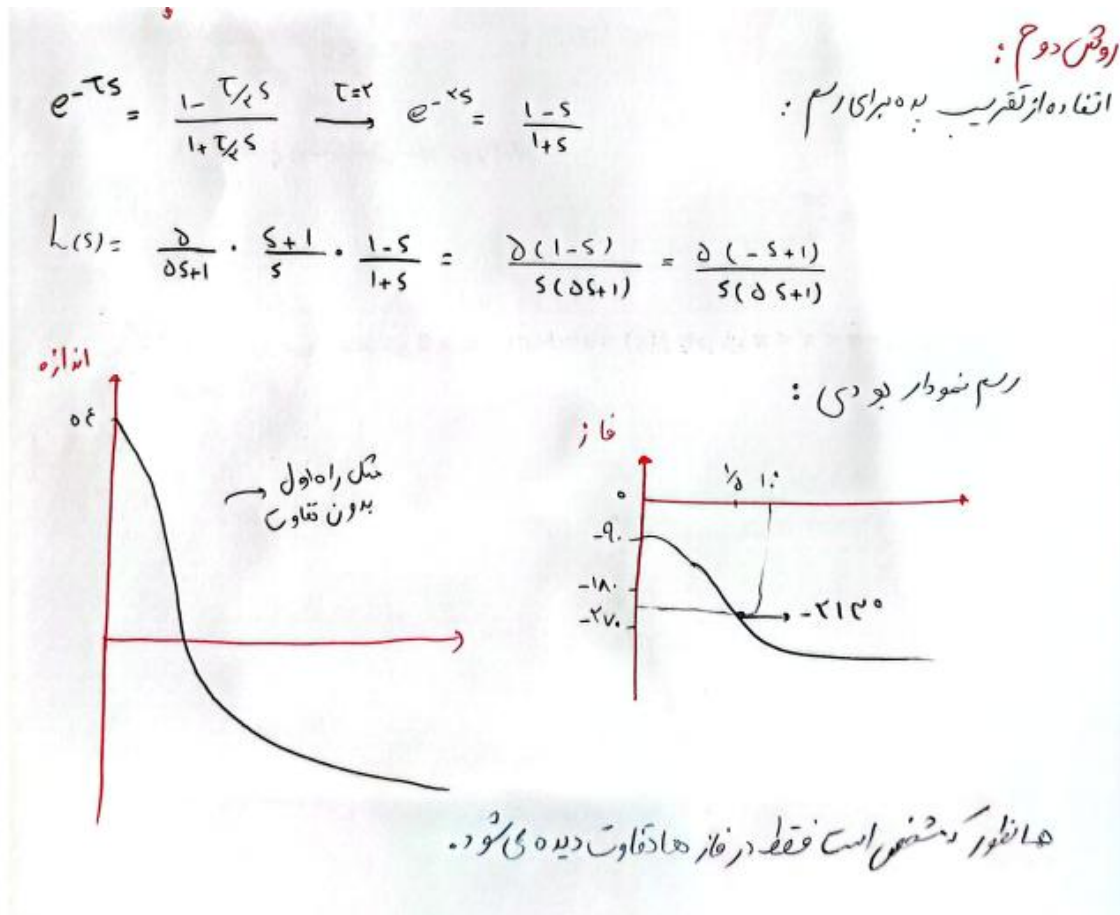 روش دوم :
اتفاده از تقریب پده برای رسم :
e^{-τs} = \frac{1 - τ/۲ s}{1 + τ/۲ s} \xrightarrow{τ=۲} e^{-۲s} = \frac{1-s}{1+s}
L(s) = \frac{۵}{۵s+1} · \frac{s+1}{s} · \frac{1-s}{1+s} = \frac{۵(1-s)}{s(۵s+1)} = \frac{۵(-s+1)}{s(۵s+1)}
رسم نمودار بودی :
اندازه
۵۴
مثل راه اول
بدون تفاوت
فاز
۱/۵ ۱۰
۰
-۹۰
-۱۸۰
-۲۷۰
-۲۱۳°
همانطور که مشخص است فقط در فاز ها تفاوت دیده می شود.